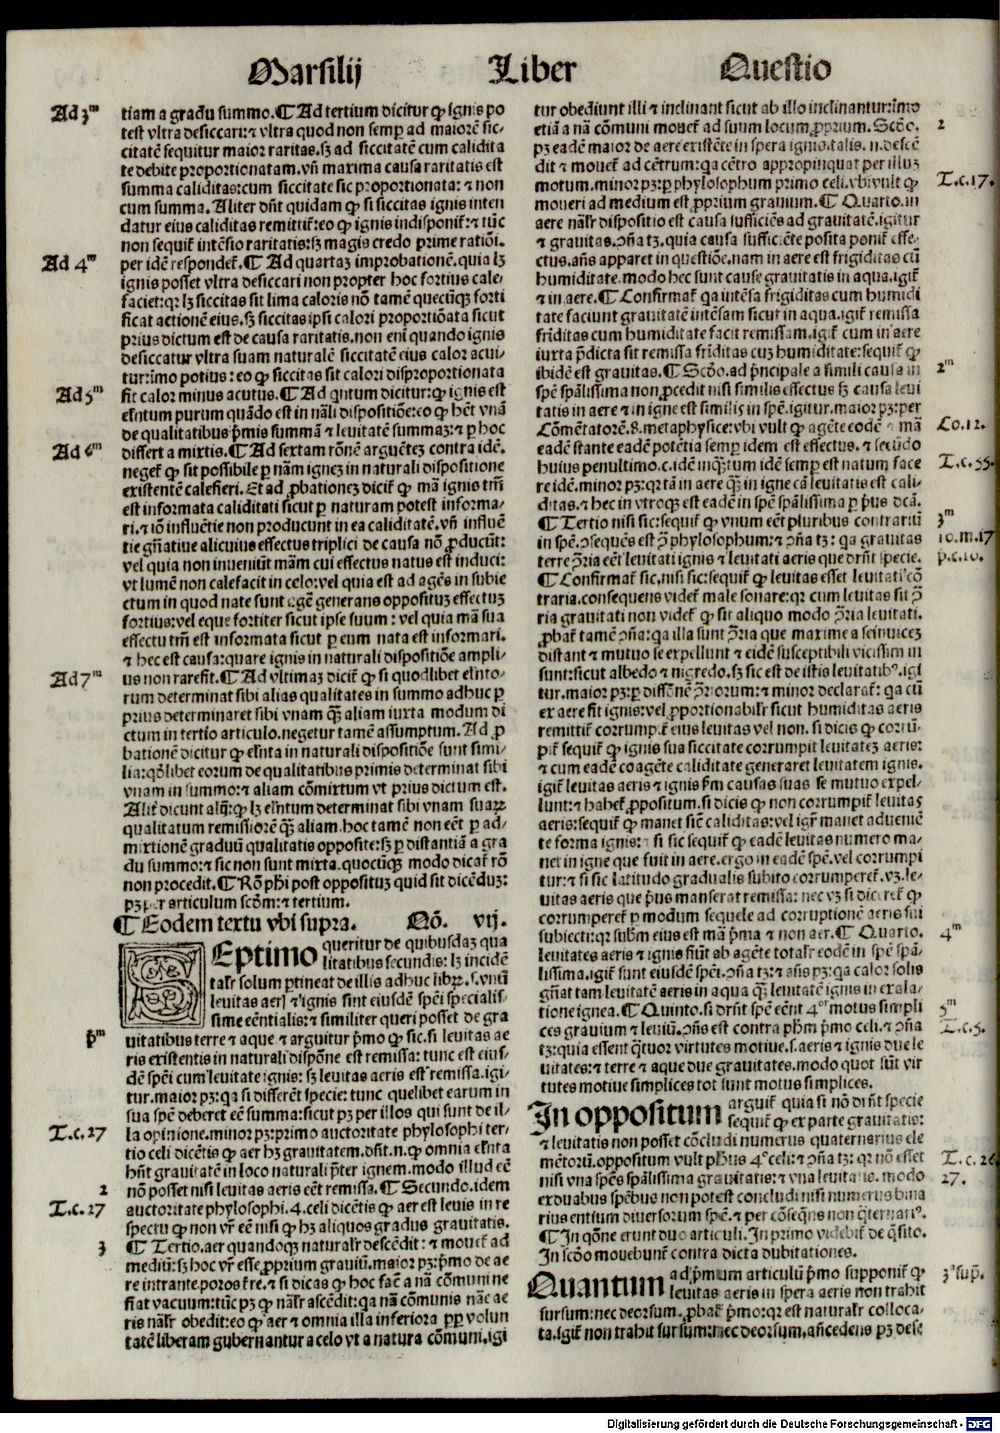 Marsilij Liber Questio
Ad 3m
tiam a gradu summo.¶ Ad tertium dicitur ꝙ ignis po
test vltra desiccari:⁊ vltra quod non semꝑ ad maiorē sic-
citatē sequitur maior raritas.sꝫ ad siccitatē cum calidita
te debite proportionatam.vn̄ maxima causa raritatis est
summa caliditas:cum siccitate sic proportionata:⁊ non
cum summa.Aliter dn̄t quidam ꝙ si siccitas ignis inten
datur eius caliditas remittit̄:eo ꝙ ignis indisponit̄:⁊ tūc
non sequit̄ intēsio raritatis:sꝫ magis credo prime ratiōi.
Ad 4m
per idē respondet̄.¶ Ad quartaꝫ improbationē.quia lꝫ
ignis posset vltra desiccari non propter hoc fortius cale-
faciet:qꝛ lꝫ siccitas sit lima caloris nō tamē quecūqꝫ forti
ficat actionē eius.sꝫ siccitas ipsi calori proportiōata sicut
prius dictum est de causa raritatis.non eni quando ignis
desiccatur vltra suam naturalē siccitatē eius calor acui-
tur:imo potius:eo ꝙ siccitas sit calori disproportionata
Ad 5m
fit calor minus acutus.¶ Ad qntum dicitur:ꝙ ignis est
eln̄tum purum quādo est in nāli dispositiōe:eo ꝙ hēt vnā
de qualitatibus pmis summā ⁊ leuitatē summaꝫ:⁊ ꝑ hoc
Ad 6m
differt a mixtis.¶ Ad sextam rōnē arguētꝫ contra idē.
neget̄ ꝙ sit possibile ꝑ nām igneꝫ in naturali dispositione
existentē calefieri.Et ad ꝓbationeꝫ dicit̄ ꝙ mā ignis tm̄
est informata caliditati sicut ꝑ naturam potest informa-
ri.⁊ iō influētie non producunt in ea caliditatē.vn̄ influē
tie gn̄atiue alicuius effectus triplici de causa nō ꝓducūt:
vel quia non inueniūt mām cui effectus natus est induci:
vt lumē non calefacit in celo:vel quia est ad agēs in subie
ctum in quod nate sunt agē generans oppositus effectuꝫ
fortius:vel eque fortiter sicut ipse suum:vel quia mā sua
effectu tm̄ est informata sicut ꝑ eum nata est informari.
⁊ hec est causa:quare ignis in naturali dispositiōe ampli-
Ad 7m
us non rarefit.¶ Ad vltimaꝫ dicit̄ ꝙ si quodlibet eln̄to-
rum determinat sibi alias qualitates in summo adhuc ꝑ
prius determinaret sibi vnam qꝫ̄ aliam iuxta modum di
ctum in tertio articulo.negetur tamē assumptum.Ad ꝓ
bationē dicitur ꝙ eln̄ta in naturali dispositiōe sunt simi-
lia:qd̄libet eorum de qualitatibus primis determinat sibi
vnam in summo:⁊ aliam cōmixtum vt prius dictum est.
Alit̄ dicunt alij:ꝙ lꝫ eln̄tum determinat sibi vnam suaꝝ
qualitatum remissiorē qꝫ̄ aliam.hoc tamē non eēt ꝑ ad-
mixtionē graduū qualitatis opposite:sꝫ ꝑ distantiā a gra
du summo:⁊ sic non sunt mixta.quocūqꝫ modo dicat̄ rō
non procedit.¶ Rō phi post oppositus quid sit dicēduꝫ:
pꝫ per articulum scōm:⁊ tertium.
¶ Eodem textu vbi supra. Nō. vij.
SEptimo queritur de quibusdaꝫ qua
litatibus secundis:lꝫ incidē
talr̄ solum ꝑtineat de illis adhuc libꝝ.s.vnū
leuitas aeris ⁊ ignis sint eiusdē spēi specialis-
sime eēntialis:⁊ similiter queri posset de gra
pm
uitatibus terre ⁊ aque ⁊ arguitur pmo ꝙ sic.si leuitas ae
ris existentis in naturali dispōne est remissa:tunc est eius-
dē spēi cum leuitate ignis:sꝫ leuitas aeris est remissa.igi-
tur.maior pꝫ:qa si differēt specie:tunc quelibet earum in
sua spē deberet eē summa:sicut pꝫ per illos qui sunt de il-
T.c.27
la opinione.minor pꝫ:primo auctoritate phylosophi ter-
tio celi dicētis ꝙ aer hꝫ grauitatem.dn̄t.n.ꝙ omnia eln̄ta
hn̄t grauitatē in loco naturali p̄ter ignem.modo illud eē
2
nō posset nisi leuitas aeris eēt remissa.¶ Secundo.idem
T.c.27
auctoritate phylosophi.4.celi dicētis ꝙ aer est leuis in re
spectu ꝙ non vr̄ eē nisi ꝙ hꝫ aliquos gradus grauitatis.
3
¶ Tertio.aer quandoqꝫ naturalr̄ descēdit:⁊ mouet̄ ad
mediū:sꝫ hoc vr̄ esse ꝓprium grauiū.maior pꝫ:pmo de ae
re intrante.poros t̄re.⁊ si dicas ꝙ hoc facē a nā cōmuni ne
fiat vacuum:tūc pꝫ ꝙ nālr̄ ascēdit:qa nā cōmunis nāc ae
ris nālr̄ obedit:eo ꝙ aer ⁊ omnia illa inferiora ꝑp volun
tatē liberam gubernantur a celo vt a natura cōmuni.igi
tur obediunt illi ⁊ inclinant sicut ab illo inclinantur:imo
2
etiā a nā cōmuni mouet̄ ad suum locum ꝓprium.Scd̄o.
pꝫ eadē maior de aere existēte in spera ignis.talis.n.descē
dit ⁊ mouet̄ ad cētrum:qa cētro appropinquat per illuꝫ
T.c.17.
motum.minor pꝫ:ꝑ phylosophum primo celi.vbi vult ꝙ
moueri ad medium est ꝓprium grauium.¶ Quarto.in
aere nālr̄ dispositio est causa sufficiēs ad grauitatē.igitur
⁊ grauitas.ↄn̄a tꝫ.quia causa sufficiēte posita ponit̄ effe-
ctus.an̄s apparet in questiōe.nam in aere est frigiditas cū
humiditate.modo hec sunt cause grauitatis in aqua.igit̄
⁊ in aere.¶ Confirmat̄ qa intēsa frigiditas cum humidi
tate faciunt grauitatē intēsam sicut in aqua.igit̄ remissa
fri̅ditas cum humiditate facit remissam.igit̄ cum in aere
iuxta p̄dicta sit remissa fri̅ditas cuꝫ humiditate:sequit̄ ꝙ
2m
ibidē est grauitas.¶ Scd̄o.ad p̄ncipale a simili causa in
spē spālissima non ꝓcedit nisi similis effectus sꝫ causa leui
tatis in aere ⁊ in igne est similis in spē.igitur.maior pꝫ:per
Co.12.
Cōmētatorē.8.metaphysice:vbi vult ꝙ agēte eodē ⁊ mā
eadē stante eadē potētia semꝑ idem est effectus.⁊ secūdo
T.c.55.
huius penultimo.c.idē inqꝫtum idē semꝑ est natum face
re idē.minor pꝫ:qꝛ tā in aere qꝫ̄ in igne cā leuitatis est cali-
ditas.⁊ hec in vtroqꝫ est eadē in spē spālissima ꝑ p̄us dcā.
3m
¶ Tertio nisi sic:sequit̄ ꝙ vnum eēt pluribus contrariū
10.m.17
in spē.ↄsequēs est ↄ̄ phylosophum:⁊ ↄn̄a tꝫ:qa grauitas
p.c.10.
terre ↄ̄ria eēt leuitati ignis ⁊ leuitati aeris que drn̄t specie.
¶ Confirmat̄ sic.nisi sic:sequit̄ ꝙ leuitas esset leuitati cō
traria.consequens videt̄ male sonare:qꝛ cum leuitas sit ↄ̄
ria grauitati non videt̄ ꝙ sit aliquo modo ↄ̄ria leuitati.
ꝓbat̄ tamē ↄn̄a:qa illa sunt ↄ̄ria que maxime a seinuiceꝫ
distant ⁊ mutuo se expellunt ⁊ eidē susceptibili vicissim in
sunt:sicut albedo ⁊ nigredo.sꝫ sic est de istis leuitatibꝰ.igi
tur.maior pꝫ:ꝑ diffōnē ↄ̄riorum:⁊ minor declarat̄:qa cū
ex aere fit ignis:vel ꝓportionabilr̄ sicut humiditas aeris
remittit̄ corrumpit̄ eius leuitas vel non.si dicis ꝙ corrū-
pit̄ sequit̄ ꝙ ignis sua siccitate corrumpit leuitateꝫ aeris:
⁊ cum eadē coagēte caliditate generaret leuitatem ignis.
igit̄ leuitas aeris ⁊ ignis fm causas suas se mutuo expel-
lunt:⁊ habet̄ ꝓpositum.si dicis ꝙ non corrumpit̄ leuitas
aeris:sequit̄ ꝙ manet sicē caliditas:vel igit̄ manet adueniē
te forma ignis:⁊ si sic sequit̄ ꝙ eadē leuitas numero ma-
net in igne que fuit in aere.ergo in eadē spē.vel corrumpi
tur:⁊ si sic latitudo gradualis subito corrumperet̄.vꝫ.le-
uitas aeris que p̄us manserat remissa:nec vꝫ si diceret̄ ꝙ
corrumperet̄ ꝑ modum sequele ad corruptionē aeris sui
4m
subiecti:qꝛ subm eius est mā p̄ma ⁊ non aer.¶ Quarto.
leuitates aeris ⁊ ignis fiūt ab agēte totalr̄ eodē in spē spā-
lissima.igit̄ sunt eiusdē spēi.ↄn̄a tꝫ:⁊ an̄s pꝫ:qa calor solis
gn̄at tam leuitatē aeris in aqua qꝫ̄ leuitatē ignis in exala-
5m
tione ignea.¶ Quinto.si drn̄t spē eēnt 4oꝛ motus simpli
T.c.5.
ces grauium ⁊ leuiū.ↄn̄s est contra phm p̄mo celi.⁊ ↄn̄a
tꝫ:quia essent q̄tuor virtutes motiue.s.aeris ⁊ ignis due le
uitates:⁊ terre ⁊ aque due grauitates.modo quot sūt vir
tutes motiue simplices tot sunt motus simplices.
In oppositum arguit̄ quia si nō drn̄t specie
sequit̄ ꝙ ex parte grauitatis:
⁊ leuitatis non posset cōcludi numerus quaternarius ele
T.c.26
mētorū.oppositum vult phus 4o celi:⁊ ↄn̄a tꝫ:qꝛ nō esset
27.
nisi vna spēs spālissima grauitatis:⁊ vna leuitatis.modo
ex duabus spēbus non potest concludi nisi numerus bina
rius entium diuersorum spē.⁊ per cōseqn̄s non q̄ternariꝰ.
¶ In qōne erunt duo articuli.In primo videbit̄ de q̄sito.
In scd̄o mouebunt̄ contra dicta dubitationes.
3a sup̄.
Quantum ad p̄mum articulū p̄mo supponit̄ ꝙ
leuitas aeris in spera aeris non trahit
sursum:nec deorsum.ꝓbat̄ p̄mo:qꝛ est naturalr̄ colloca-
ta.igit̄ non trahit sursum:nec deorsum.an̄cedens pꝫ de se
Digitalisierung gefördert durch die Deutsche Forschungsgemeinschaft - DFG